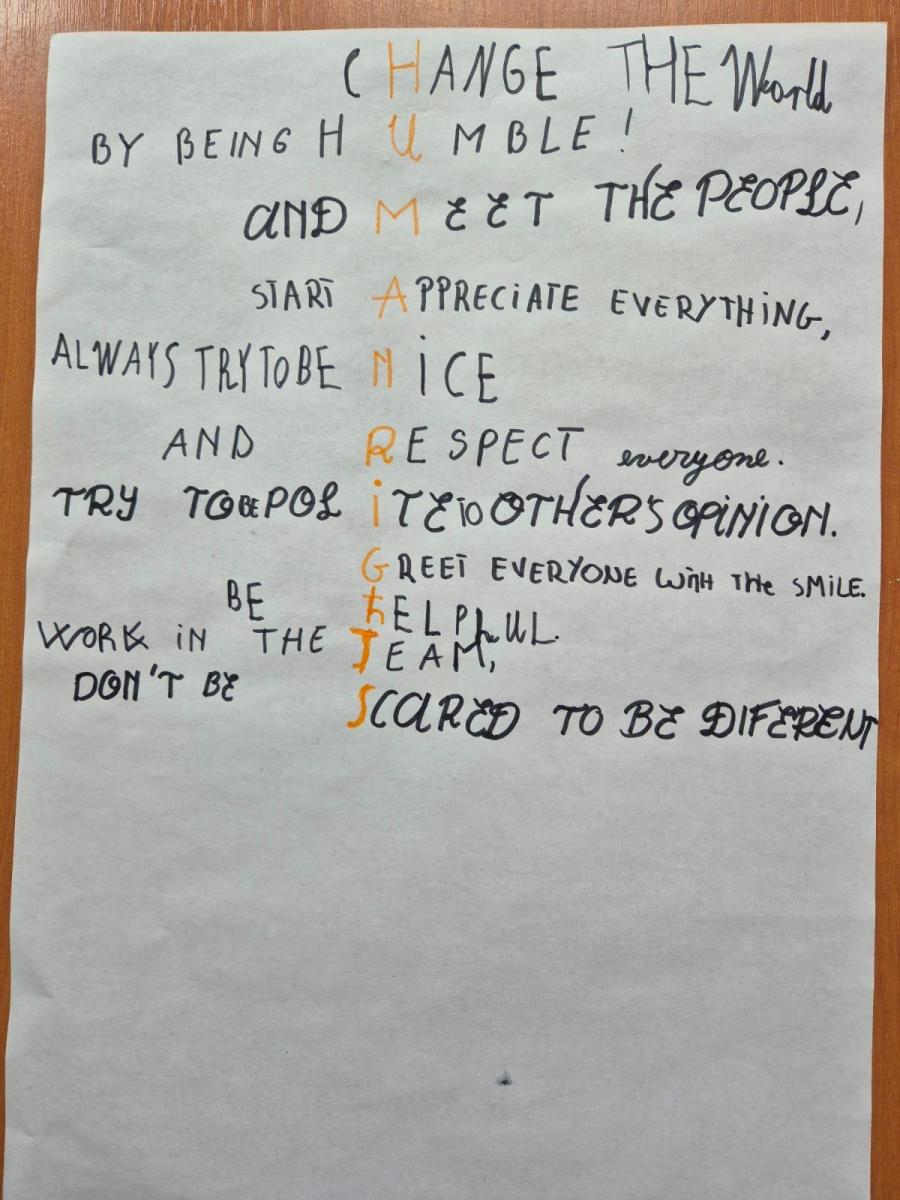 CHANGE THE World
BY BEING HUMBLE!
AND MEET THE PEOPLE,
START APPRECIATE EVERYTHING,
ALWAYS TRY TO BE NICE
AND RESPECT everyone.
TRY TO BE POLITE TO OTHER'S OPINION.
GREET EVERYONE WITH THE SMILE.
BE HELPFUL.
WORK IN THE TEAM,
DON'T BE SCARED TO BE DIFERENT